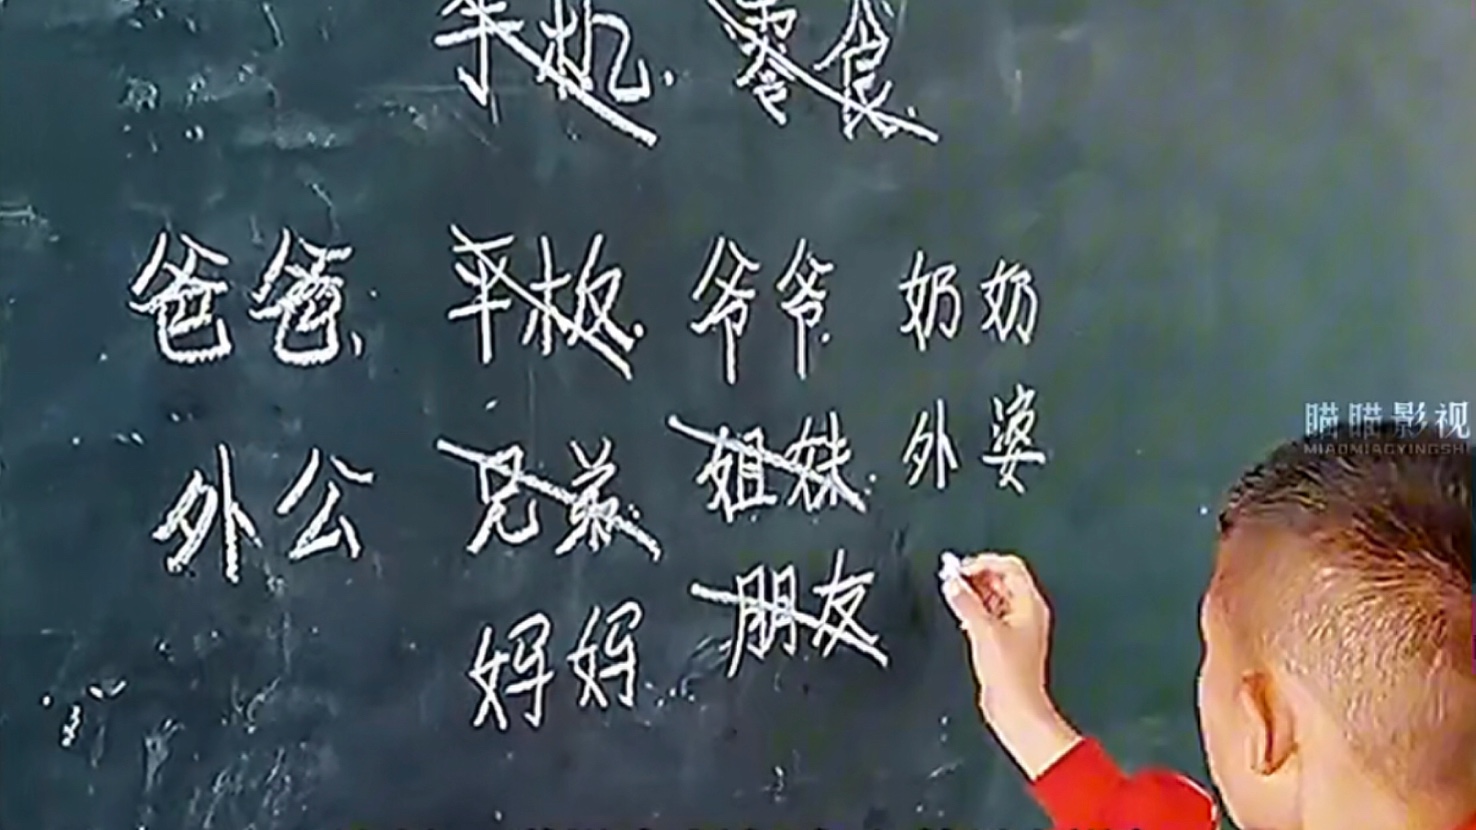 手机. 零食.
爸爸、 平板. 爷爷. 奶奶
外公 兄弟. 姐妹. 外婆
妈妈 朋友
瞄瞄影视
MIAOMIAOYINGSHI